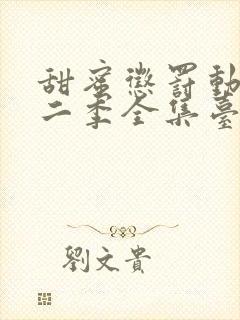 甜蜜懲罰動
二季全集臺
劉文貴